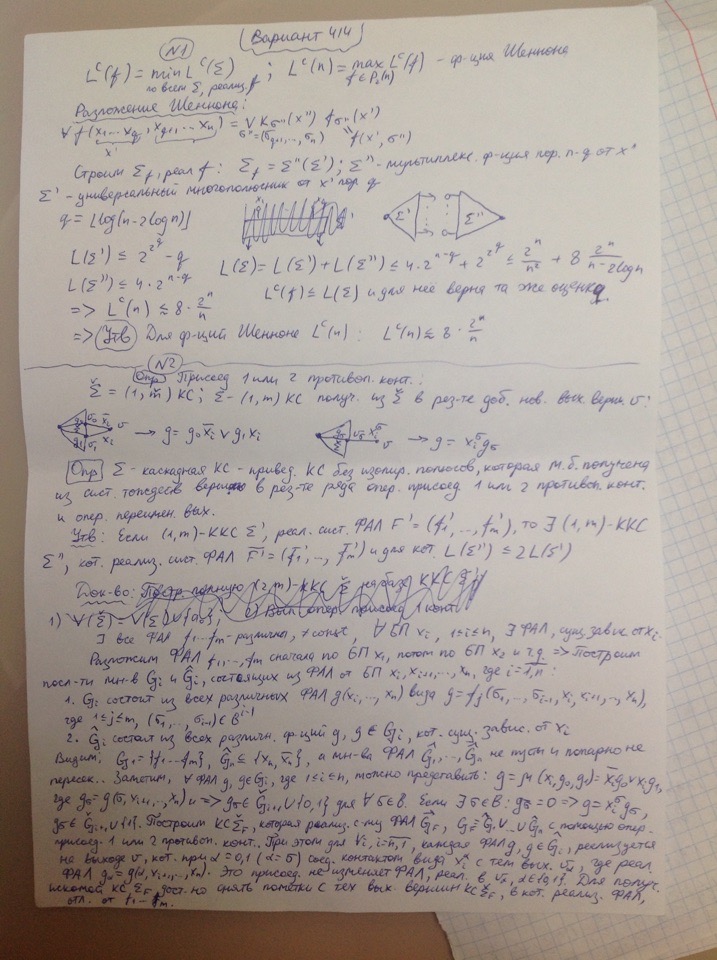 Вариант 414
№1
L^c(f) = min L^c(Σ) ; L^c(n) = max L^c(f) - ф-ция Шеннона
по всем Σ, реализ. f f∈P₂(n)
Разложение Шеннона:
∀ f(x₁...x_q, x_{q+1},...x_n) = ∨ K_{σ''}(x'') f_{σ''}(x')
x' σ''=(σ_{q+1},...,σ_n) f(x', σ'')
Строим Σ_f, реал f: Σ_f = Σ''(Σ'); Σ'' - мультиплекс. ф-ция пор. n-q от x''
Σ' - универсальный многополюсник от x' пор. q
q = ⌊log(n-2logn)⌋
Σ' Σ''
L(Σ') ≤ 2^{2^q} - q
L(Σ) = L(Σ') + L(Σ'') ≤ 4·2^{n-q} + 2^{2^q} ≤ 2^n/n² + 8 2^n/(n-2logn)
L(Σ'') ≤ 4·2^{n-q}
L^c(f) ≤ L(Σ) и для неё верна та же оценка
=> L^c(n) ≲ 8·2^n/n
=> Утв Для ф-ций Шеннона L^c(n): L^c(n) ≲ 8·2^n/n
№2
Опр Присоед 1 или 2 противоп. конт.:
Σ̌ = (1, m̌) КС; Σ - (1, m) КС получ. из Σ̌ в рез-те доб. нов. вых. верш. v:
→ g = g₀x̄ᵢ ∨ g₁xᵢ → g = xᵢ^σ g_σ
Опр Σ - каскадная КС - привед. КС без изолир. полюсов, которая м.б. получена
из сист. тождеств. вершин в рез-те ряда опер. присоед 1 или 2 противоп. конт.
и опер. переимен. вых.
Утв: Если (1, m)-ККС Σ', реал. сист. ФАЛ F' = (f₁',..., f_m'), то ∃ (1, m)-ККС
Σ'', кот. реализ. сист. ФАЛ F̄' = (f̄₁',..., f̄_m') и для кот. L(Σ'') ≤ 2L(Σ')
Док-во:
1)
∃ все ФАЛ f₁...f_m - различно, ≠ const, ∀ БП xᵢ, 1≤i≤n, ∃ ФАЛ, сущ. завис. от xᵢ.
Разложим ФАЛ f₁,..., f_m сначала по БП x₁, потом по БП x₂ и т.д. => Построим
посл-ти мн-в Gᵢ и Ĝᵢ, состоящих из ФАЛ от БП xᵢ, xᵢ₊₁,..., x_n, где i=1,n:
1. Gᵢ состоит из всех различных ФАЛ g(xᵢ,..., x_n) вида g = f_j(σ₁,..., σᵢ₋₁, xᵢ, xᵢ₊₁,..., x_n),
где 1≤j≤m, (σ₁,..., σᵢ₋₁)∈B^{i-1}
2. Ĝᵢ состоит из всех различн. ф-ций g, g∈Gᵢ, кот. сущ. завис. от xᵢ
Видим: G₁ = {f₁...f_m}, Ĝ_n ⊆ {x_n, x̄_n}, а мн-ва ФАЛ Ĝ₁,..., Ĝ_n не пусты и попарно не
пересек. Заметим, ∀ ФАЛ g, g∈Ĝᵢ, где 1≤i≤n, можно представить: g = μ(xᵢ, g₀, g₁) = x̄ᵢg₀ ∨ xᵢg₁,
где g_σ = g(σ, xᵢ₊₁,..., x_n) и => g_σ ∈ Gᵢ₊₁ ∪ {0,1} для ∀ σ∈B. Если ∃ σ∈B: g_σ̄ = 0 => g = xᵢ^σ g_σ,
g_σ ∈ Gᵢ₊₁ ∪ {1}. Построим КС Σ̌_F, которая реализ. с-му ФАЛ Ĝ_F, Ĝ_F = Ĝ₁ ∪...∪ Ĝ_n с помощью опер.
присоед. 1 или 2 противоп. конт. При этом для ∀i, i=n,1, каждая ФАЛ g, g∈Ĝᵢ, реализуется
на выходе v, кот. при α=0,1 (α=σ) соед. контактом вида xᵢ^α с тем вых. v_α, где реал.
ФАЛ g_α = g(α, xᵢ₊₁,..., x_n). Это присоед. не изменяет ФАЛ, реал. в v_α, α∈{0,1}. Для получ.
искомой КС Σ_F, дост-но снять пометки с тех вых. вершин КС Σ̌_F, в кот. реализ. ФАЛ,
отл. от f₁...f_m.